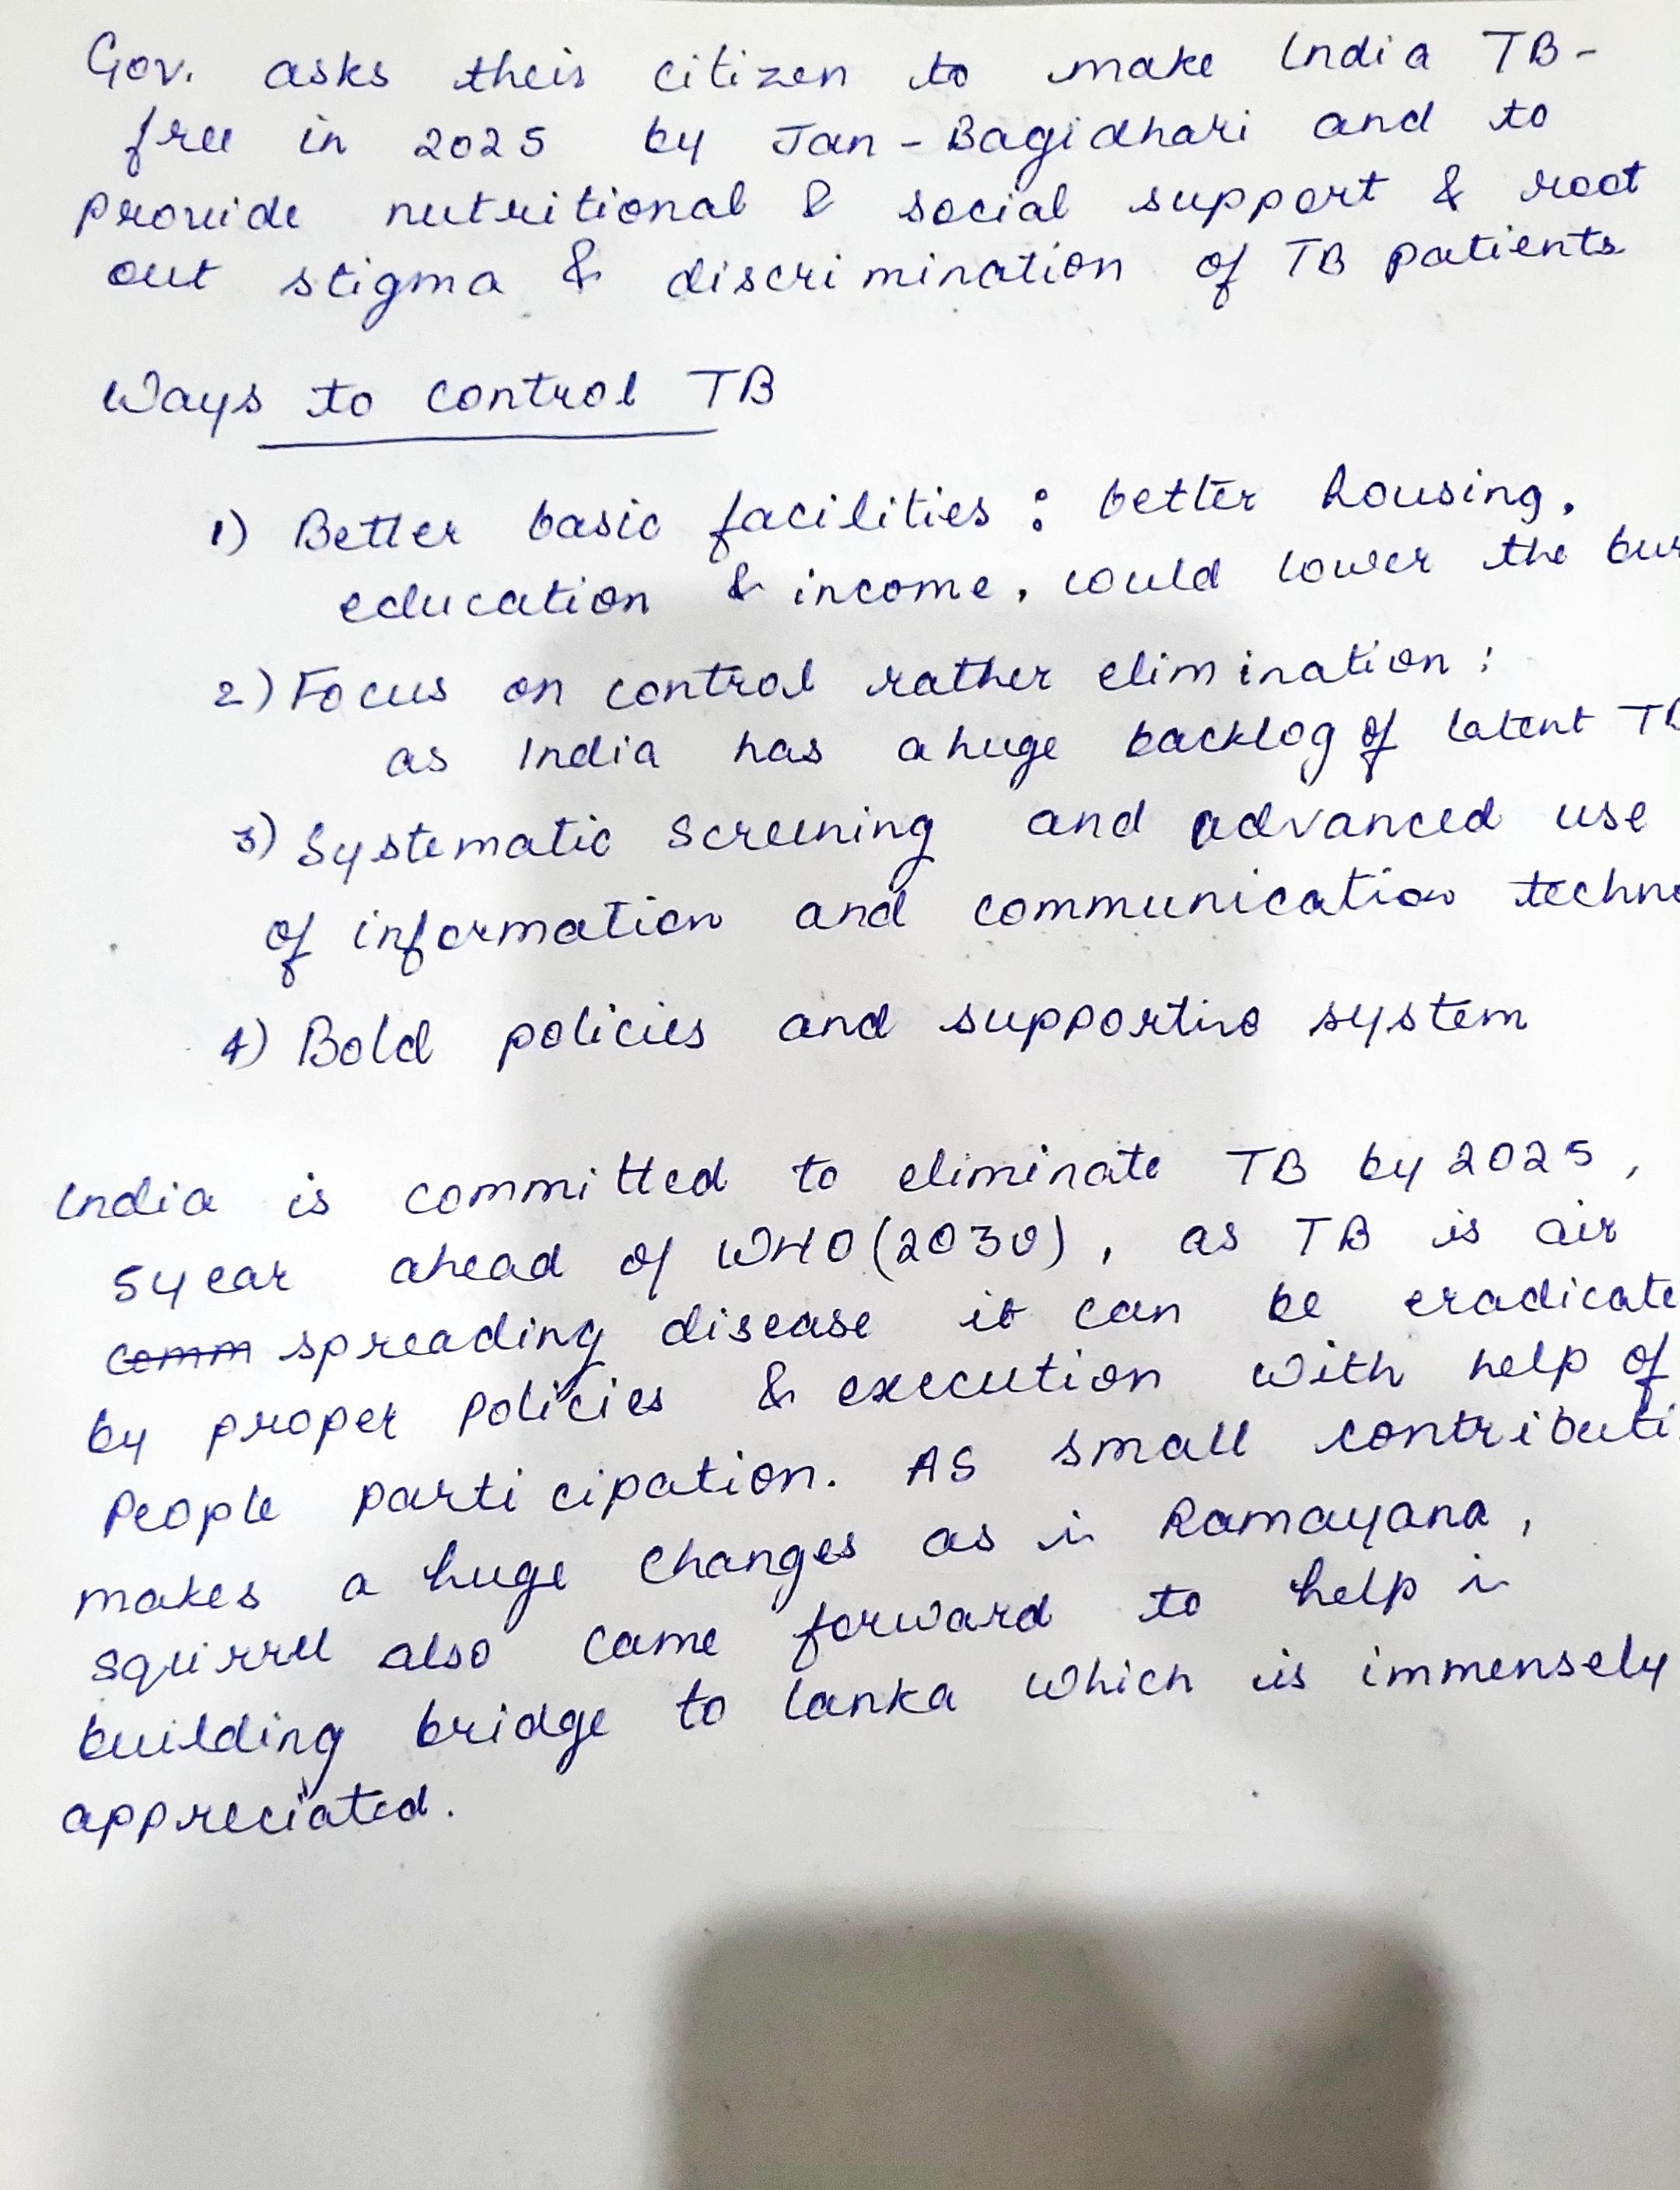 Gov. asks their citizen to make India TB-
free in 2025 by Jan-Bagidhari and to
provide nutritional & social support & root
out stigma & discrimination of TB patients
Ways to control TB
1) Better basic facilities : better housing,
education & income, could lower the bur
2) Focus on control rather elimination :
as India has a huge backlog of latent TB
3) Systematic screening and advanced use
of information and communication techno
4) Bold policies and supportive system
India is committed to eliminate TB by 2025,
5year ahead of WHO (2030), as TB is air
comm spreading disease it can be eradicate
by proper policies & execution with help of
People participation. AS small contributi
makes a huge changes as in Ramayana,
squirrel also came forward to help in
building bridge to lanka which is immensely
appreciated.